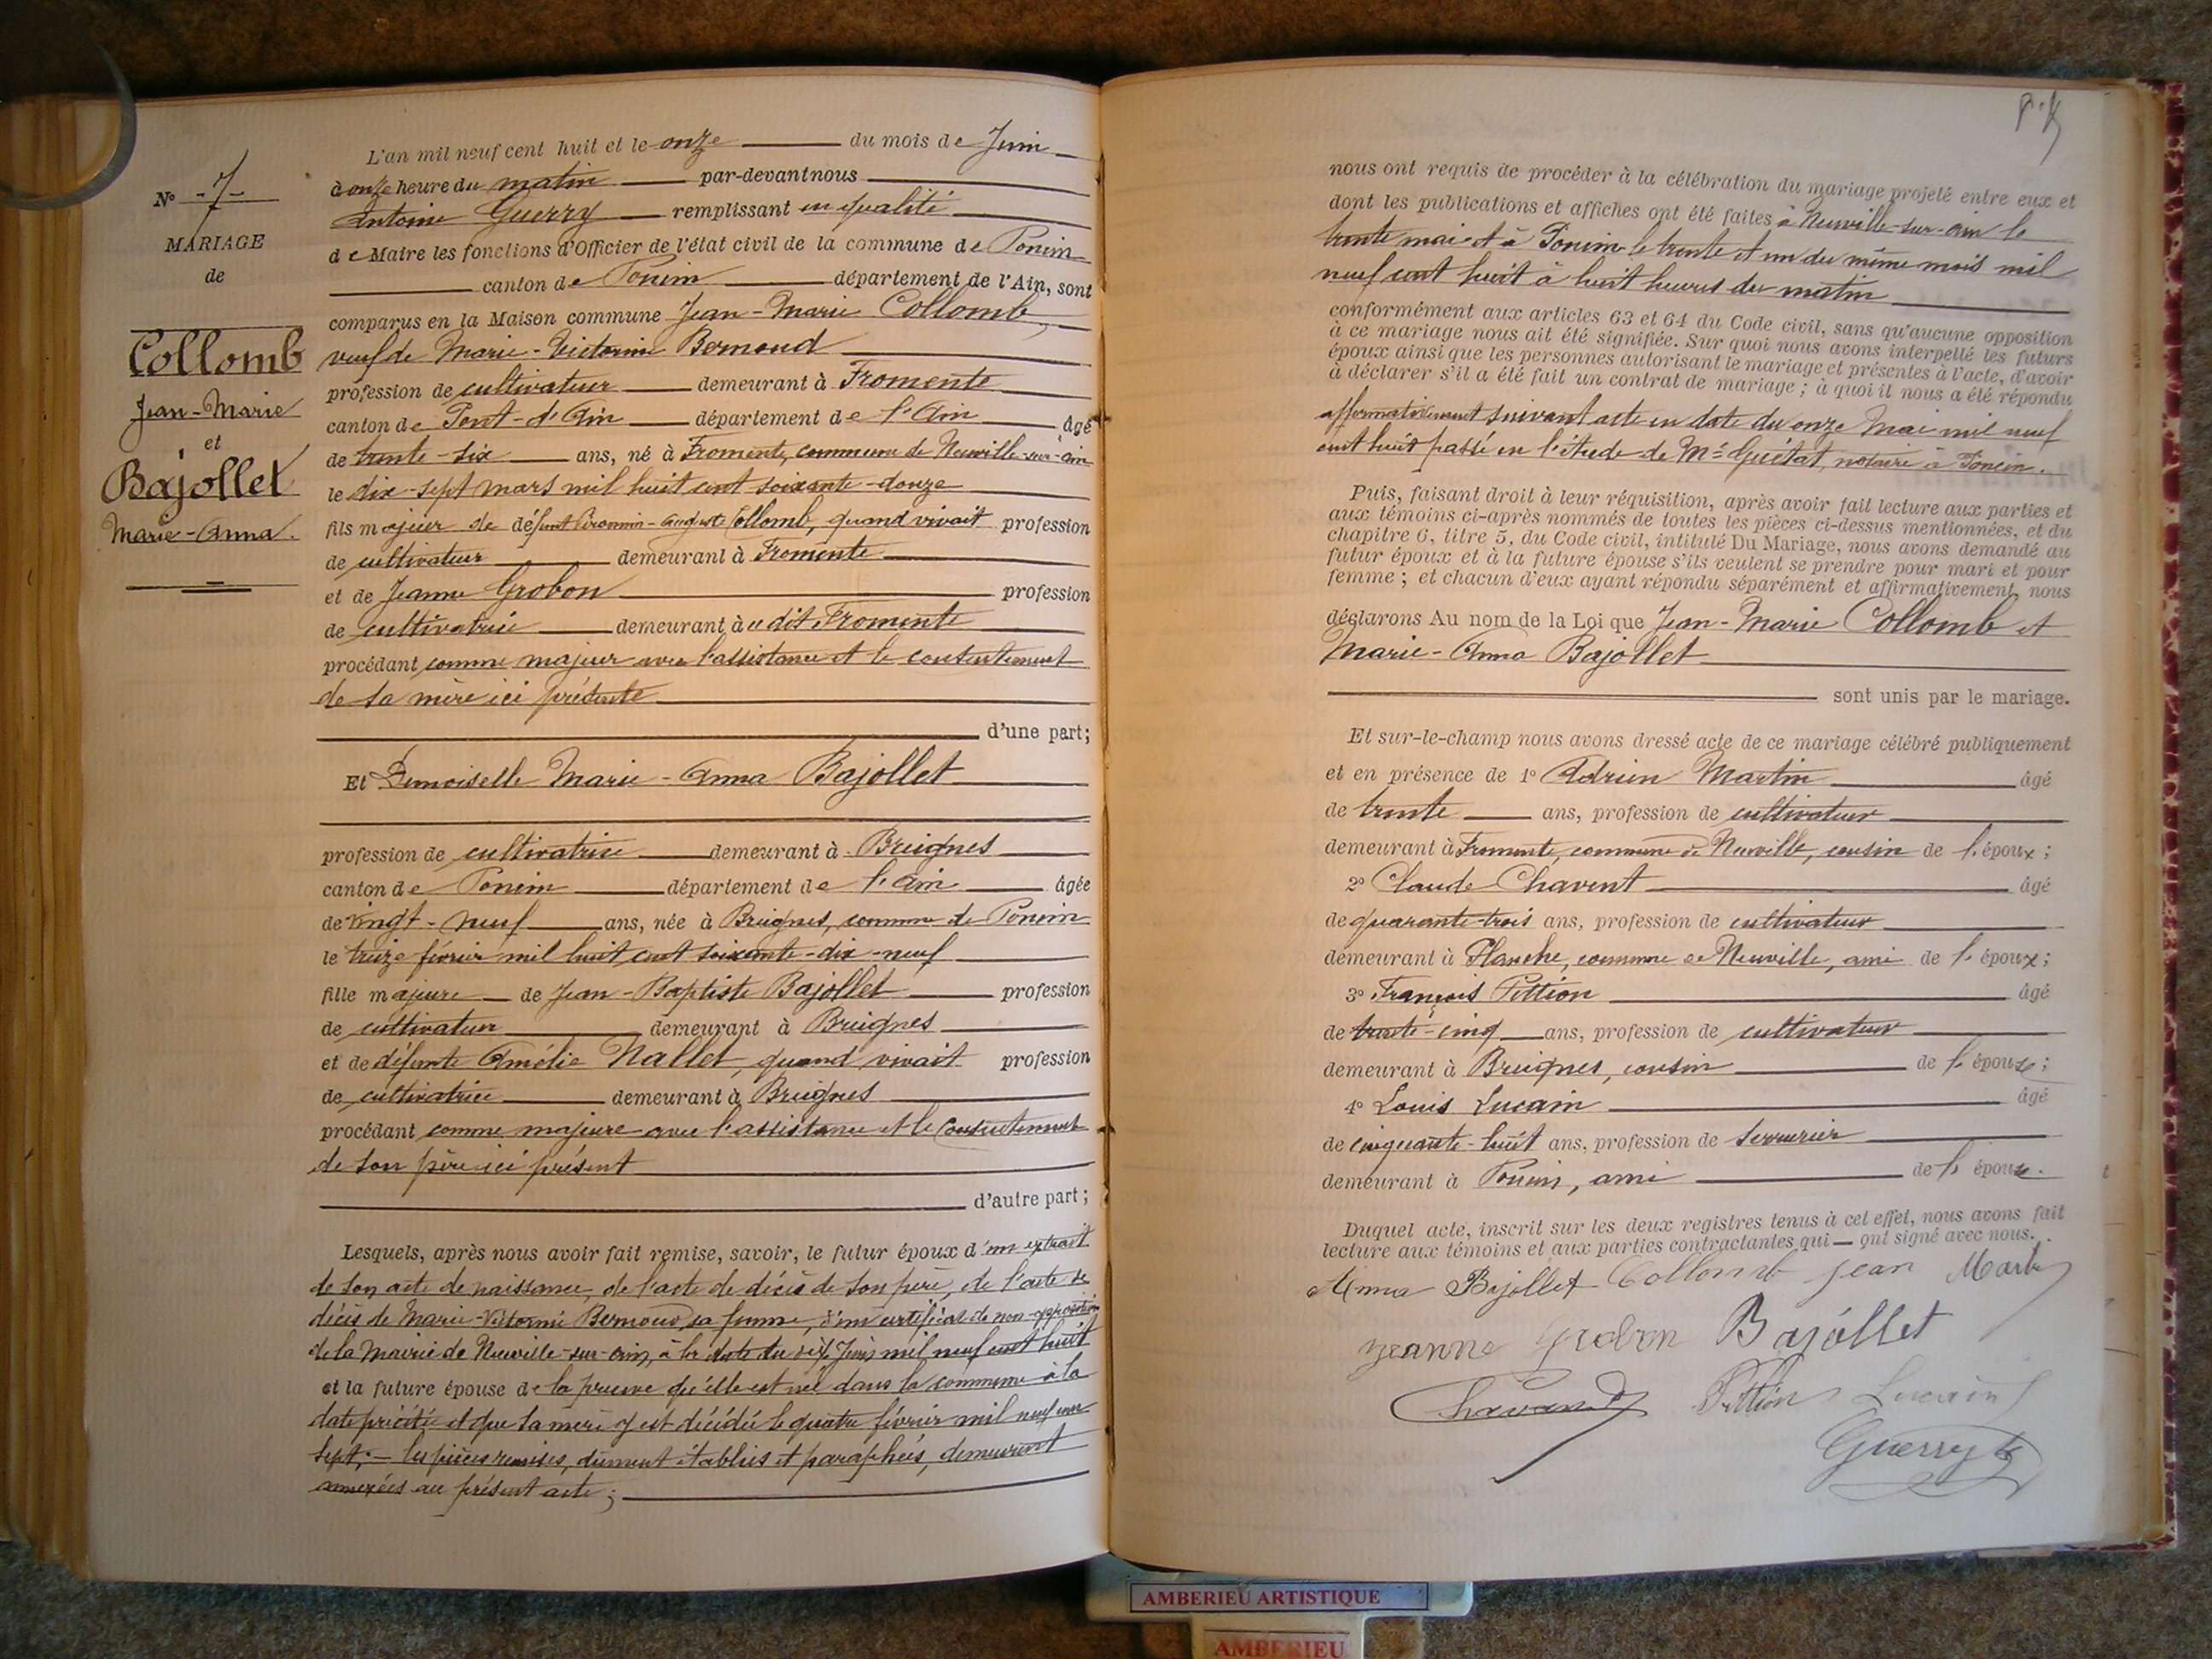 N° -7-
MARIAGE
de
Collomb
Jean-Marie
et
Bajollet
Marie-Anna.
L'an mil neuf cent huit et le onze du mois de Juin
à onze heure du matin par-devant nous
Antoine Guerry remplissant en qualité
de Maire les fonctions d'Officier de l'état civil de la commune de Poncin
canton de Poncin département de l'Ain, sont
comparus en la Maison commune Jean-Marie Collomb,
veuf de Marie-Victorine Bernoud
profession de cultivateur demeurant à Fromente
canton de Pont-d'Ain département de l'Ain âgé
de trente-six ans, né à Fromente, commune de Neuville-sur-Ain
le dix-sept mars mil huit cent soixante-douze
fils majeur de défunt -Auguste Collomb, quand vivait profession
de cultivateur demeurant à Fromente
et de Jeanne Grobon profession
de cultivatrice demeurant à u dit Fromente
procédant comme majeur avec l'assistance et le consentement
de sa mère ici présente
d'une part;
Et Demoiselle Marie-Anna Bajollet
profession de cultivatrice demeurant à Breignes
canton de Poncin département de l'Ain âgée
de vingt-neuf ans, née à Breignes, commune de Poncin
le treize février mil huit cent soixante-dix-neuf
fille majeure de Jean-Baptiste Bajollet profession
de cultivateur demeurant à Breignes
et de défunte Amélie Nallet, quand vivait profession
de cultivatrice demeurant à Breignes
procédant comme majeure avec l'assistance et le consentement
de son père ici présent
d'autre part;
Lesquels, après nous avoir fait remise, savoir, le futur époux d'un extrait
de son acte de naissance, de l'acte de décès de son père, de l'acte de
décès de Marie-Victorine Bernoud, sa femme, d'un certificat de non-opposition
de la Mairie de Neuville-sur-Ain, à la date du dix Juin mil neuf cent huit
et la future épouse de la preuve qu'elle est née dans la commune à la
date précitée et que sa mère y est décédée le quatre février mil neuf cent
sept; – les pièces remises, dûment établies et paraphées, demeurent
annexées au présent acte;
nous ont requis de procéder à la célébration du mariage projeté entre eux et
dont les publications et affiches ont été faites à Neuville-sur-Ain le
trente mai et à Poncin le trente et un du même mois mil
neuf cent huit à huit heures du matin
conformément aux articles 63 et 64 du Code civil, sans qu'aucune opposition
à ce mariage nous ait été signifiée. Sur quoi nous avons interpellé les futurs
époux ainsi que les personnes autorisant le mariage et présentes à l'acte, d'avoir
à déclarer s'il a été fait un contrat de mariage; à quoi il nous a été répondu
affirmativement suivant acte en date du onze Mai mil neuf
cent huit passé en l'étude de Me Guétat, notaire à Poncin.
Puis, faisant droit à leur réquisition, après avoir fait lecture aux parties et
aux témoins ci-après nommés de toutes les pièces ci-dessus mentionnées, et du
chapitre 6, titre 5, du Code civil, intitulé Du Mariage, nous avons demandé au
futur époux et à la future épouse s'ils veulent se prendre pour mari et pour
femme; et chacun d'eux ayant répondu séparément et affirmativement, nous
déclarons Au nom de la Loi que Jean-Marie Collomb et
Marie-Anna Bajollet
sont unis par le mariage.
Et sur-le-champ nous avons dressé acte de ce mariage célébré publiquement
et en présence de 1° Adrien Martin âgé
de trente ans, profession de cultivateur
demeurant à Fromente, commune de Neuville, cousin de l'époux;
2° Claude Chavent âgé
de quarante-trois ans, profession de cultivateur
demeurant à Planche, commune de Neuville, ami de l'époux;
3° François Pittion âgé
de trente-cinq ans, profession de cultivateur
demeurant à Breignes, cousin de l'épouse;
4° Louis Lucain âgé
de cinquante-huit ans, profession de serrurier
demeurant à Poncin, ami de l'épouse.
Duquel acte, inscrit sur les deux registres tenus à cet effet, nous avons fait
lecture aux témoins et aux parties contractantes qui — ont signé avec nous.
Anna Bajollet Collomb Jean Martin
Jeanne Grobon Bajollet
Chavand Pittion Lucain
Guerry
AMBERIEU ARTISTIQUE
AMBERIEU